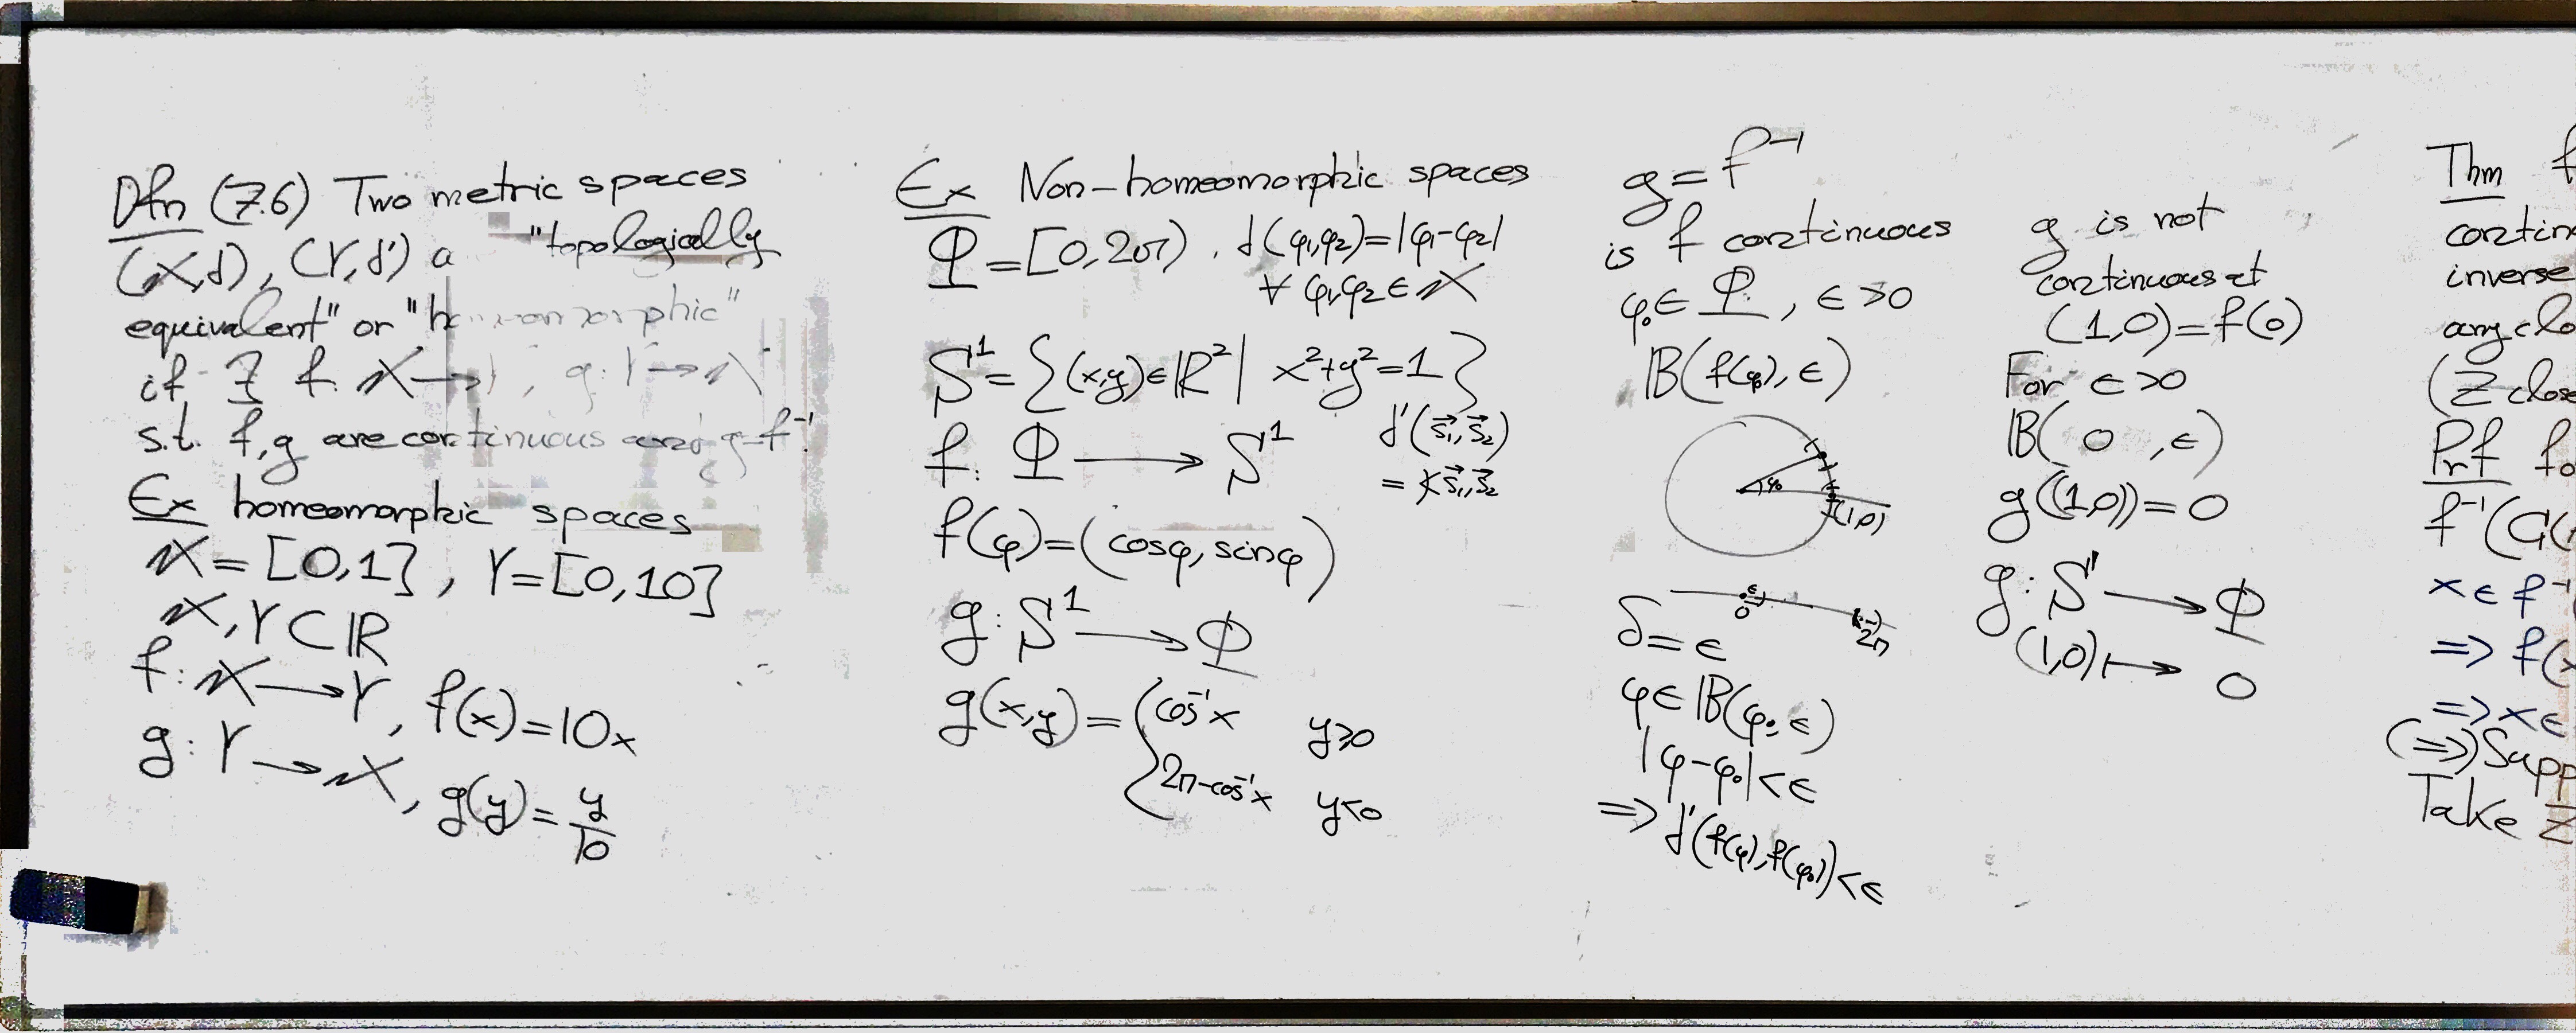 Dfn (7.6) Two metric spaces
(X,d), (Y,d') a "topologically
equivalent" or "homeomorphic"
if ∃ f: X→Y, g: Y→X
s.t. f,g are continuous and g=f⁻¹.
Ex homeomorphic spaces
X=[0,1], Y=[0,10]
X,Y⊂ℝ
f: X→Y, f(x)=10x
g: Y→X, g(y)=y/10
Ex Non-homeomorphic spaces
Φ=[0,2π), d(φ₁,φ₂)=|φ₁-φ₂|
∀ φ₁,φ₂∈X
S¹={(x,y)∈ℝ²| x²+y²=1}
d'(s⃗₁,s⃗₂)
=∢s⃗₁,s⃗₂
f: Φ→S¹
f(φ)=(cosφ, sinφ)
g: S¹→Φ
g(x,y)={cos⁻¹x y≥0
2π-cos⁻¹x y<0
g=f⁻¹
is f continuous
φ₀∈Φ, ϵ>0
𝔹(f(φ₀),ϵ)
φ₀
(1,0)
ϵ
0
2π
δ=ϵ
φ∈𝔹(φ₀,ϵ)
|φ-φ₀|<ϵ
⇒ d'(f(φ),f(φ₀))<ϵ
g is not
continuous at
(1,0)=f(0)
For ϵ>0
𝔹(0,ϵ)
g((1,0))=0
g: S¹→Φ
(1,0)↦0
Thm f
contin
inverse
any clo
(Z close
Prf fo
f⁻¹(G(
x∈f⁻¹
⇒ f(x
⇒ x∈
(⇒) Supp
Take Z